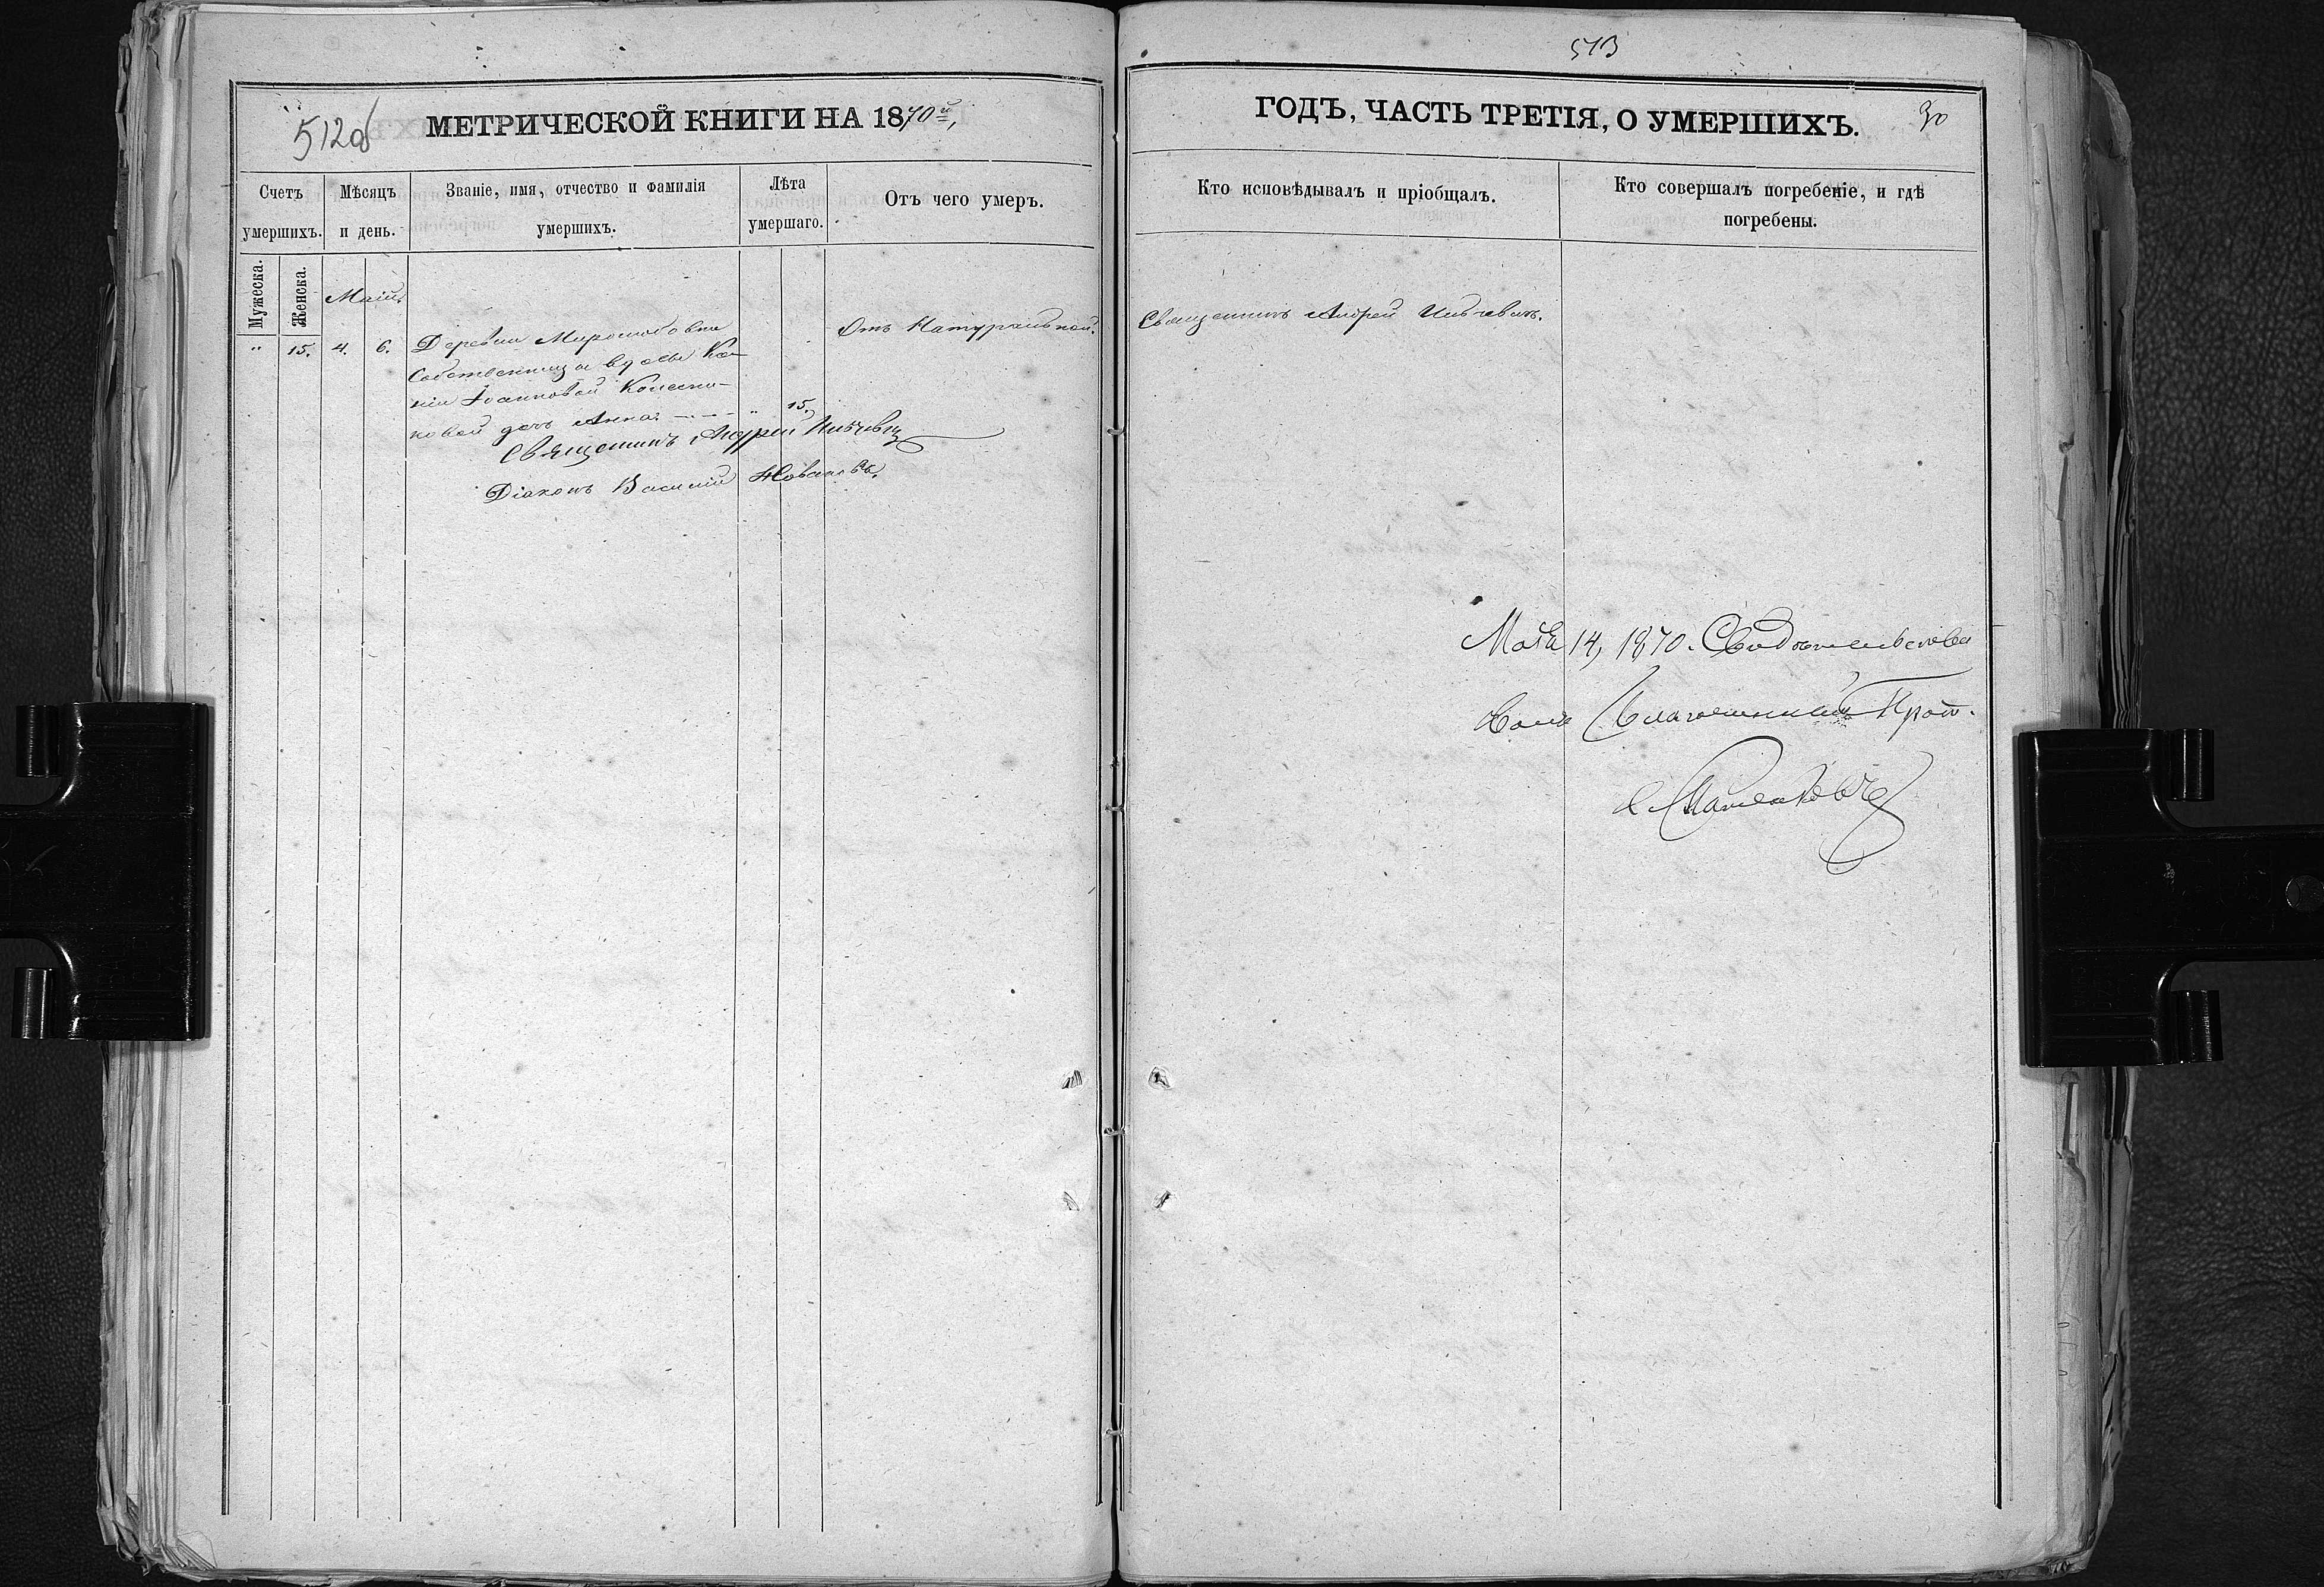 512об
МЕТРИЧЕСКОЙ КНИГИ НА 1870й,
Счетъ умершихъ.
Мѣсяцъ и день.
Званіе, имя, отчество и фамилія умершихъ.
Лѣта умершаго.
Отъ чего умеръ.
Мужеска.
Женска.
Маій.
" 15. 4. 6. Деревни
Собственницы вдовы Ксе-
ніи Іоанновой Колесни-
ковой дочь Анна. - - - " 15.
Отъ Натуральной.
Священникъ Андрей
Діаконъ Василій
513
ГОДЪ, ЧАСТЬ ТРЕТІЯ, О УМЕРШИХЪ.
30
Кто исповѣдывалъ и пріобщалъ.
Кто совершалъ погребеніе, и гдѣ погребены.
Священникъ Андрей
14, 1870. Свидѣтельство
валъ Благочинный Прот.